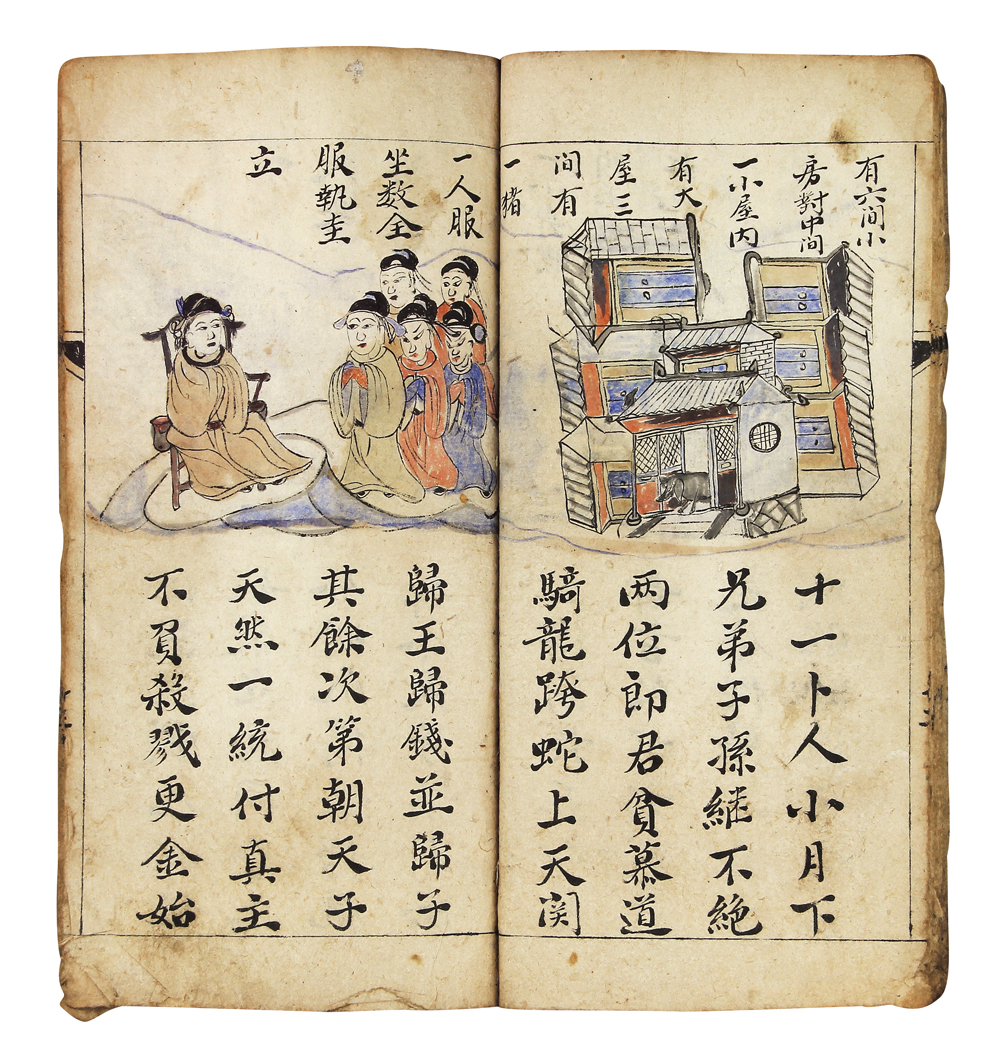 有六间小
房對中间
一小屋内
有大
屋三
间有
一猪
十一卜人小月下
兄弟子孫継不絶
两位郎君貧慕道
騎龍跨蛇上天関
一人服
坐数全
服執圭
立
歸王歸錢並歸子
其餘次第朝天子
天然一統付真主
不負殺戮更金始